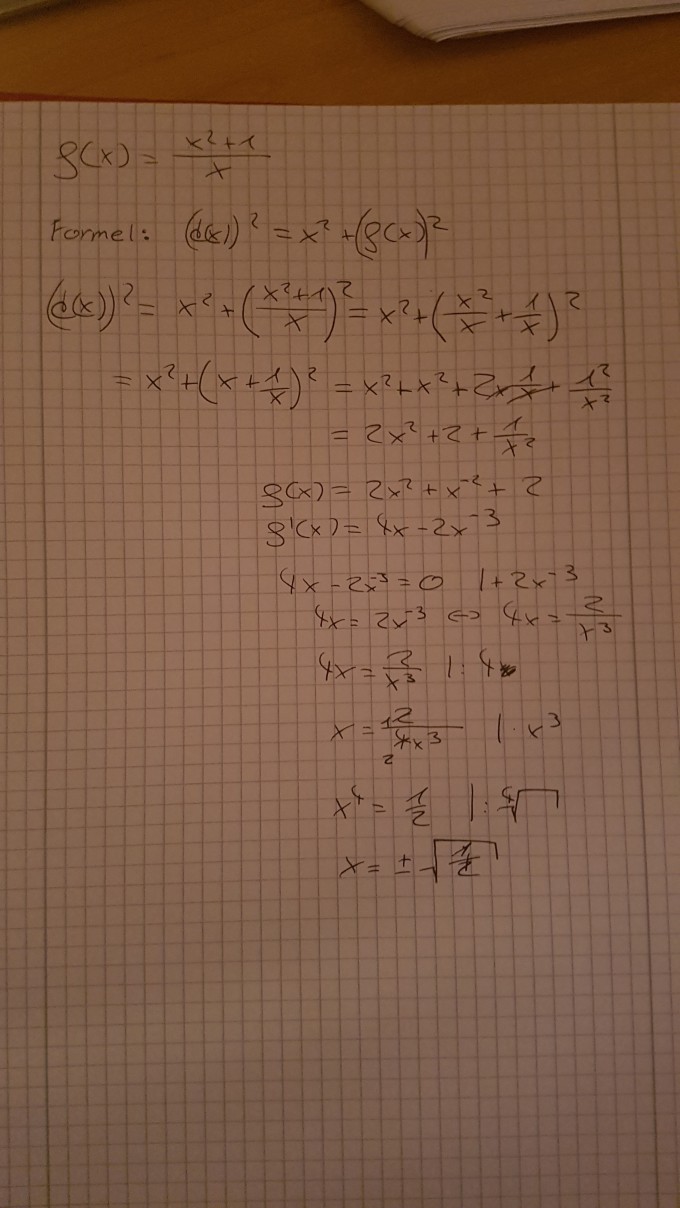 f(x) = x²+1/x
Formel: (d(x))² = x² + (f(x))²
(d(x))² = x² + (x²+1/x)² = x² + (x²/x + 1/x)²
= x² + (x + 1/x)² = x² + x² + 2x 1/x + 1²/x²
= 2x² + 2 + 1/x²
f(x) = 2x² + x⁻² + 2
f'(x) = 4x - 2x⁻³
4x - 2x⁻³ = 0 | + 2x⁻³
4x = 2x⁻³ ⇔ 4x = 2/x³
4x = 2/x³ | : 4
x = 12/24x³ | · x³
x⁴ = 1/2 | : ⁴√
x = ± √1/2